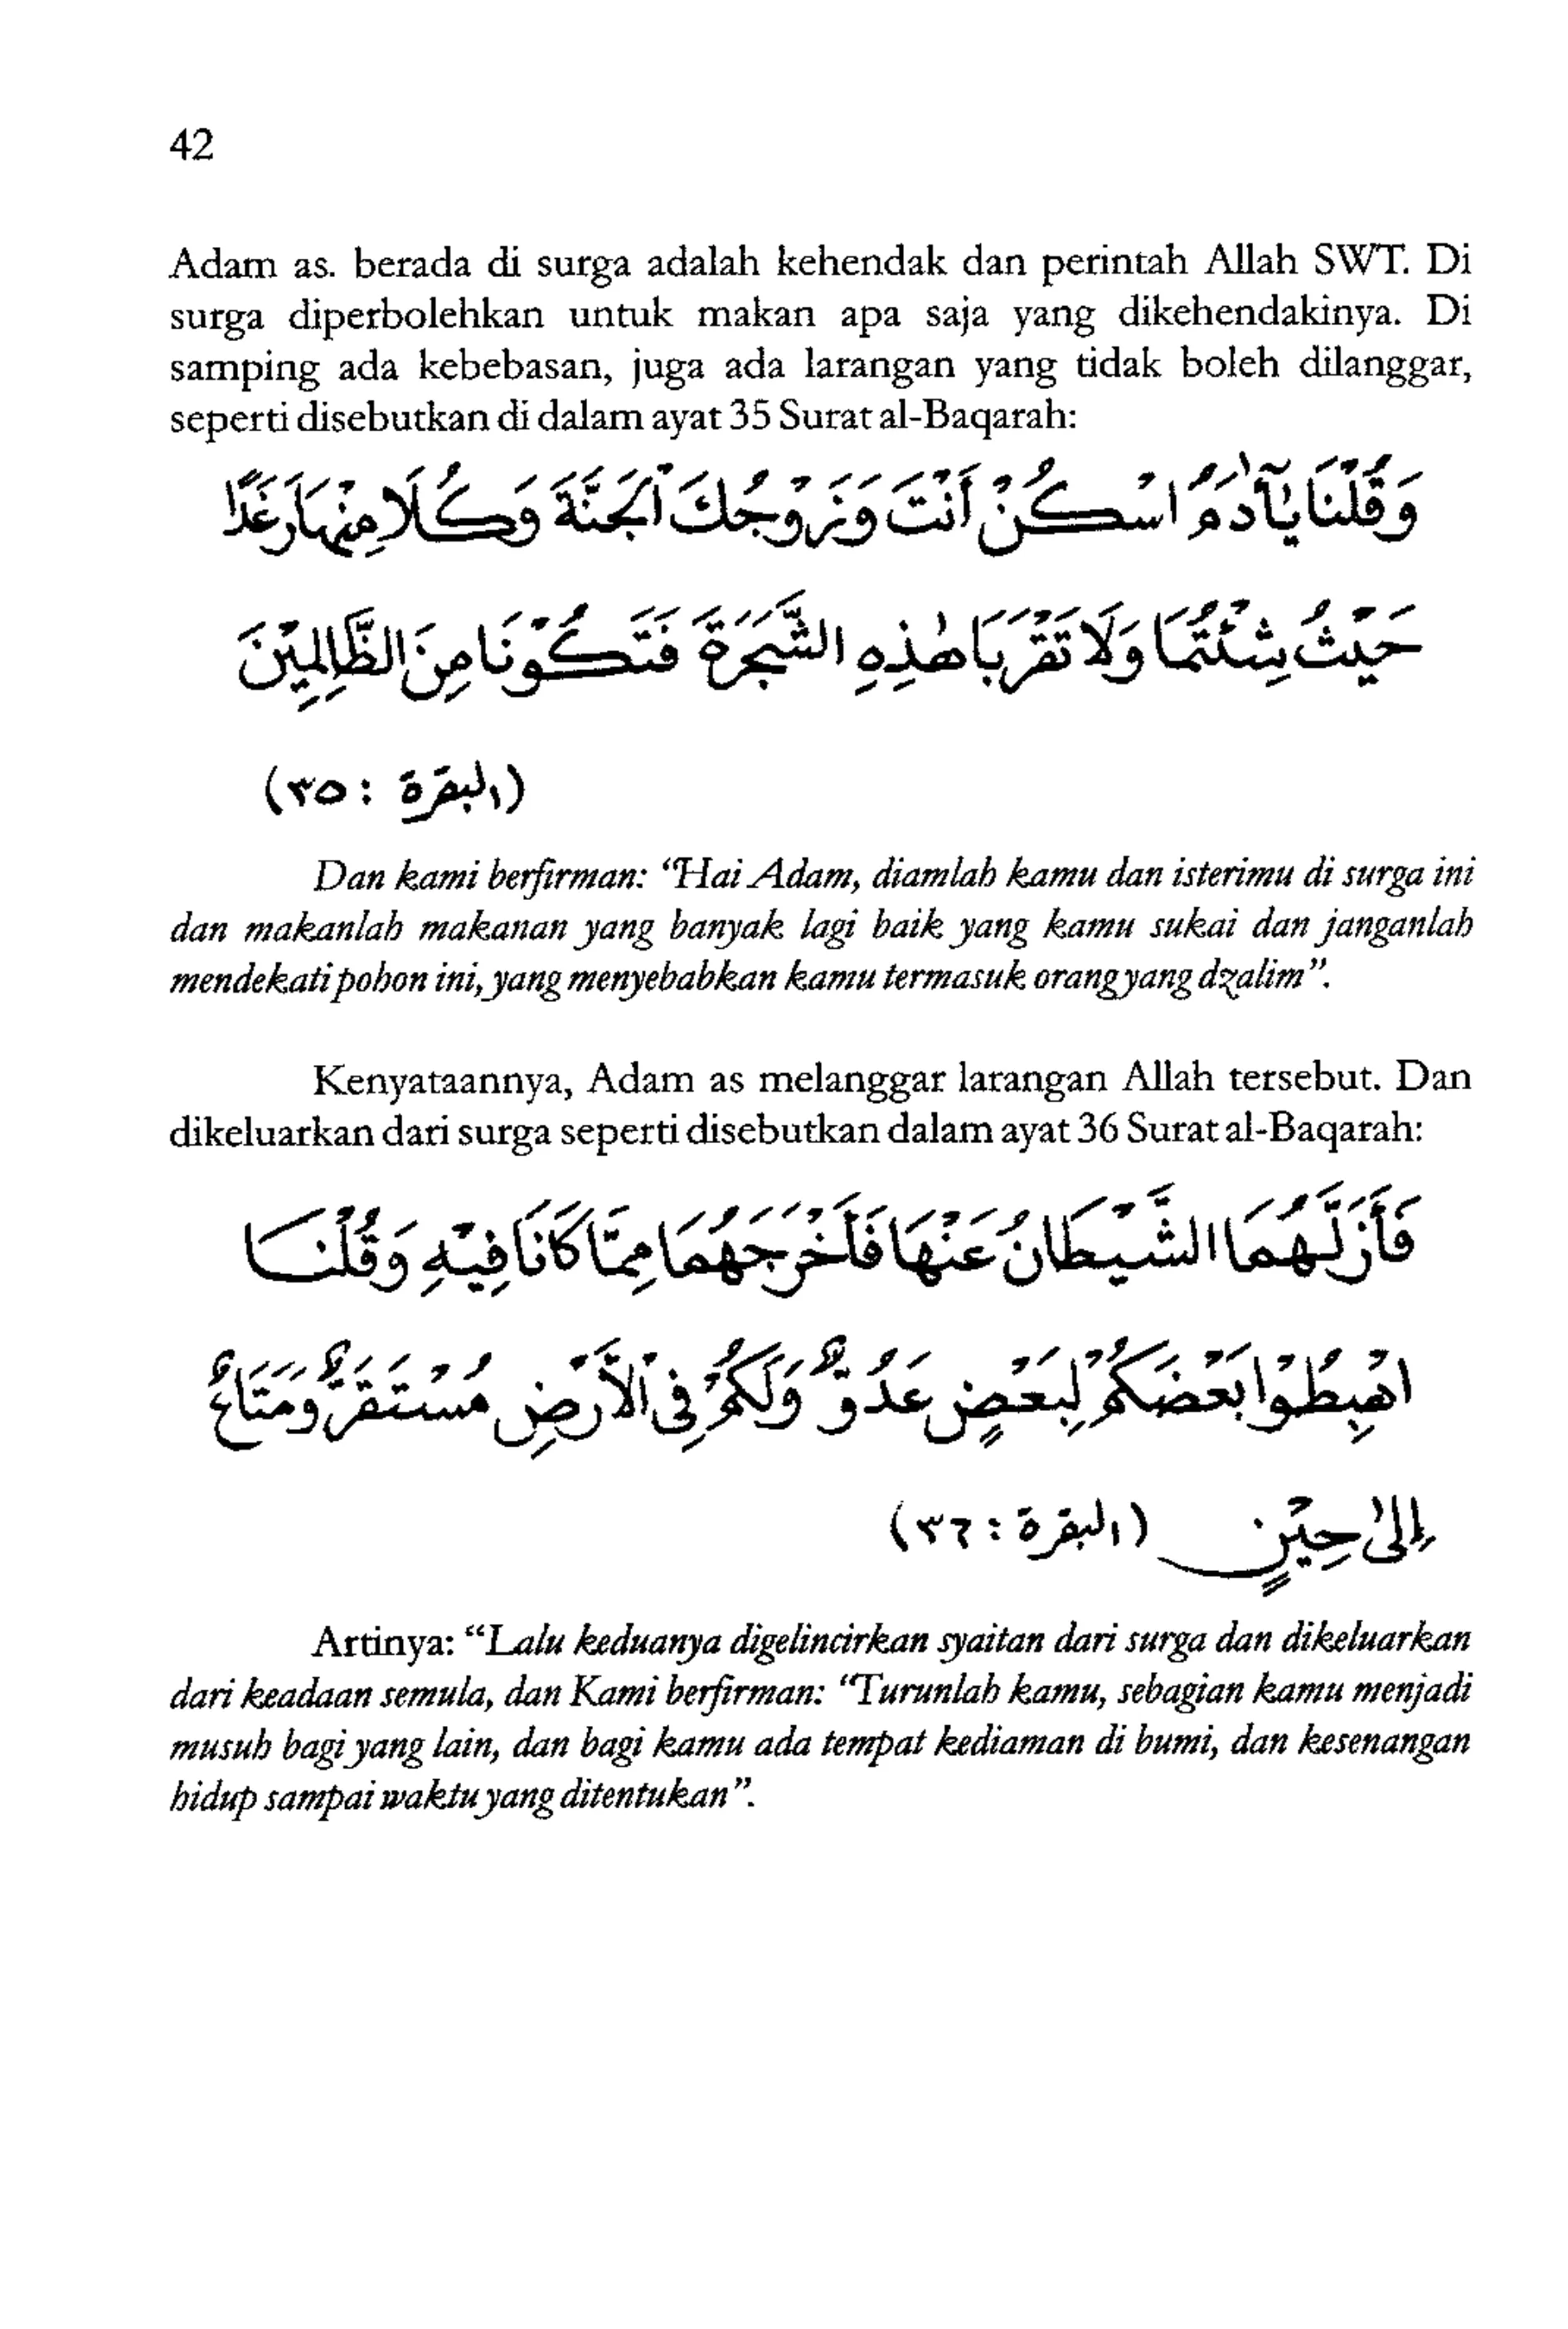 42
Adam as. berada di surga adalah kehendak dan perintah Allah SWT. Di
surga diperbolehkan untuk makan apa saja yang dikehendakinya. Di
samping ada kebebasan, juga ada larangan yang tidak boleh dilanggar,
seperti disebutkan di dalam ayat 35 Surat al-Baqarah:
وَقُلْنَا يٰٓاٰدَمُ اسْكُنْ أَنْتَ وَزَوْجُكَ الْجَنَّةَ وَكُلَا مِنْهَا رَغَدًا
حَيْثُ شِئْتُمَا وَلَا تَقْرَبَا هٰذِهِ الشَّجَرَةَ فَتَكُوْنَا مِنَ الظَّالِمِيْنَ
(البقرة : ٣٥)
Dan kami berfirman: “Hai Adam, diamlah kamu dan isterimu di surga ini
dan makanlah makanan yang banyak lagi baik yang kamu sukai dan janganlah
mendekati pohon ini, yang menyebabkan kamu termasuk orang yang dzalim”.
Kenyataannya, Adam as melanggar larangan Allah tersebut. Dan
dikeluarkan dari surga seperti disebutkan dalam ayat 36 Surat al-Baqarah:
فَأَزَلَّهُمَا الشَّيْطَانُ عَنْهَا فَأَخْرَجَهُمَا مِمَّا كَانَا فِيْهِ وَقُلْنَا
اهْبِطُوْا بَعْضُكُمْ لِبَعْضٍ عَدُوٌّ وَلَكُمْ فِى الْأَرْضِ مُسْتَقَرٌّ وَمَتَاعٌ
إِلىٰ حِيْنٍ (البقرة : ٣٦)
Artinya: “Lalu keduanya digelincirkan syaitan dari surga dan dikeluarkan
dari keadaan semula, dan Kami berfirman: “Turunlah kamu, sebagian kamu menjadi
musuh bagi yang lain, dan bagi kamu ada tempat kediaman di bumi, dan kesenangan
hidup sampai waktu yang ditentukan”.